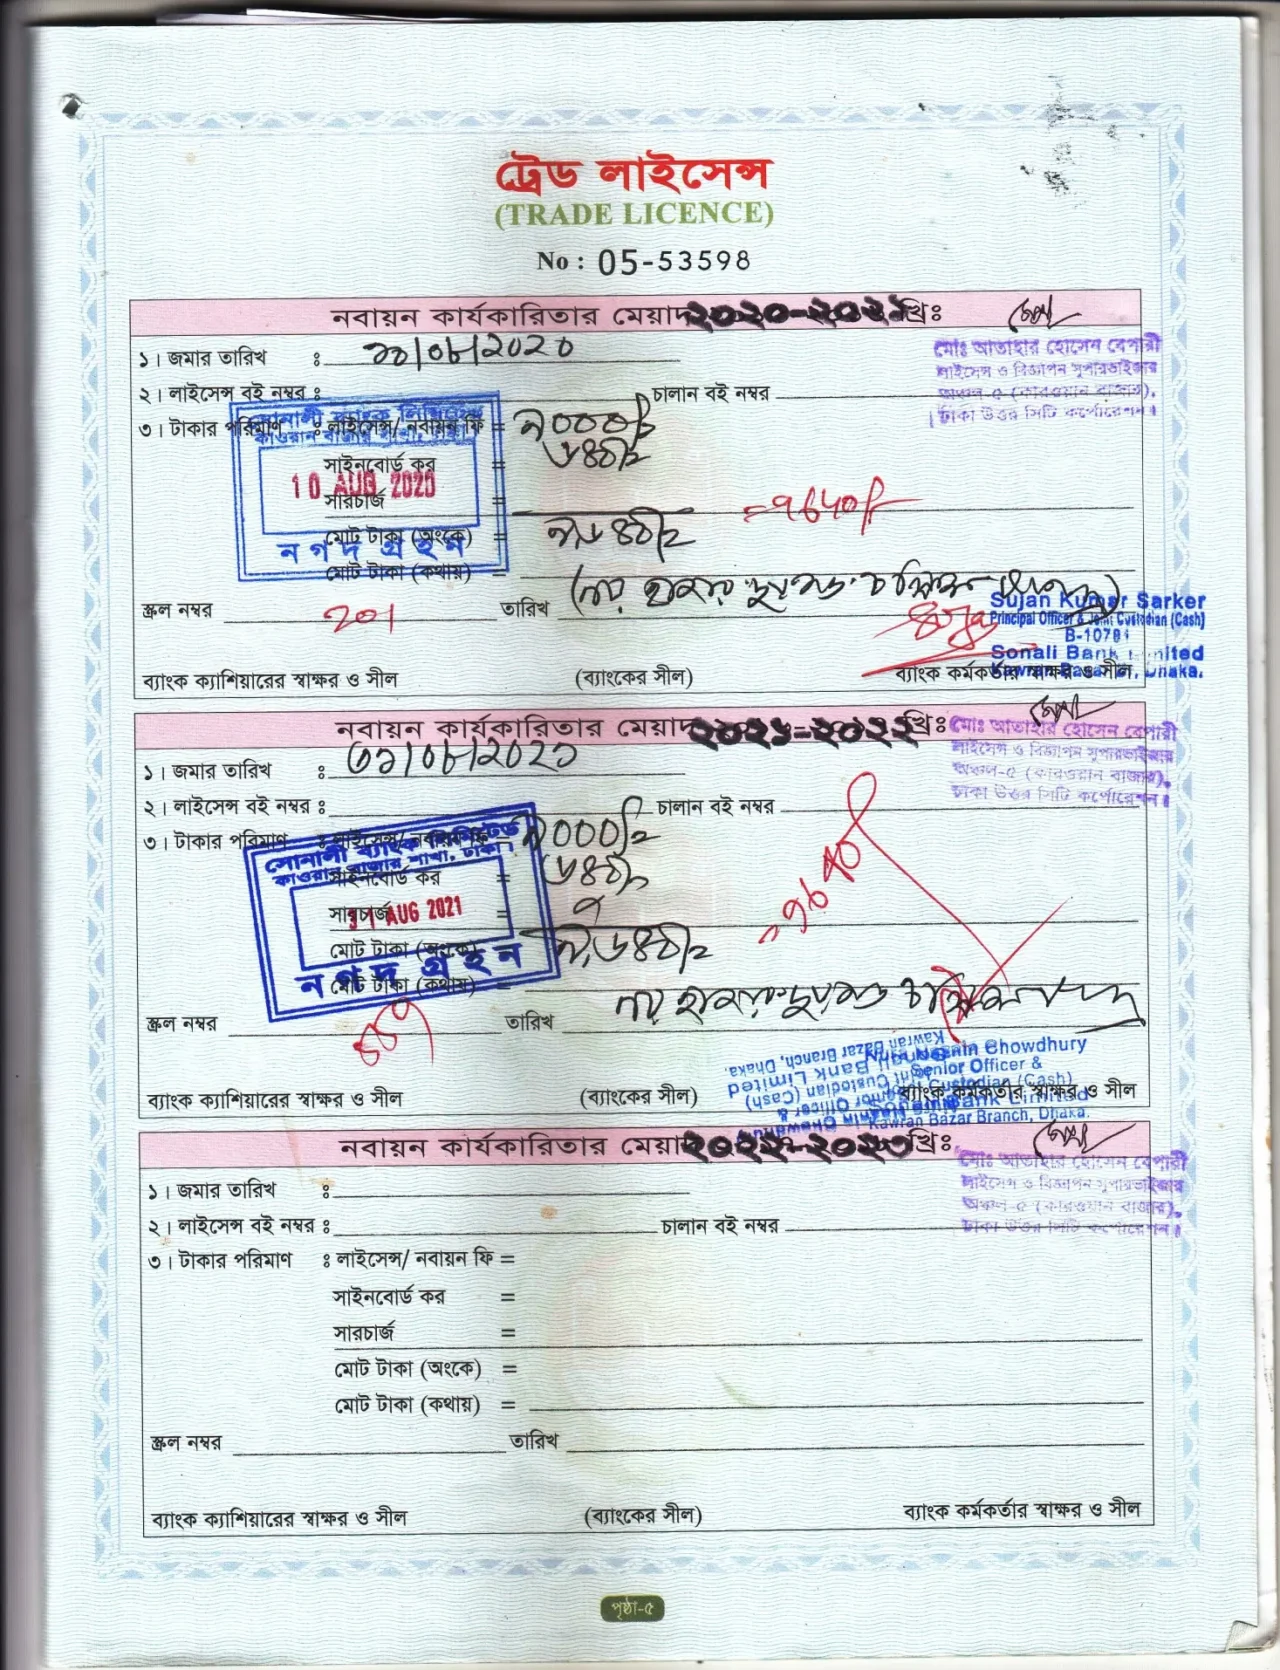 ট্রেড লাইসেন্স
(TRADE LICENCE)
No : 05-53598
নবায়ন কার্যকারিতার মেয়াদ ২০২০-২০২১ খ্রিঃ
মোঃ আতাহার হোসেন বেপারী
লাইসেন্স ও বিজ্ঞাপন সুপারভাইজার
অঞ্চল-৫ (কারওয়ান বাজার),
ঢাকা উত্তর সিটি কর্পোরেশন।
১। জমার তারিখ ঃ ১০/০৮/২০২০
২। লাইসেন্স বই নম্বর ঃ চালান বই নম্বর
৩। টাকার পরিমাণ ঃ লাইসেন্স/ নবায়ন ফি =
সোনালী ব্যাংক লিমিটেড
কাওরান বাজার শাখা, ঢাকা।
সাইনবোর্ড কর =
10 AUG 2020
সারচার্জ =
মোট টাকা (অংকে) =
নগদ গ্রহন
মোট টাকা (কথায়) =
স্ক্রল নম্বর 201 তারিখ
Sujan Kumar Sarker
Principal Officer & Joint Custodian (Cash)
B-10781
Sonali Bank Limited
Kawran Bazar Br, Dhaka.
ব্যাংক ক্যাশিয়ারের স্বাক্ষর ও সীল (ব্যাংকের সীল) ব্যাংক কর্মকর্তার স্বাক্ষর ও সীল
নবায়ন কার্যকারিতার মেয়াদ ২০২১-২০২২ খ্রিঃ
মোঃ আতাহার হোসেন বেপারী
লাইসেন্স ও বিজ্ঞাপন সুপারভাইজার
অঞ্চল-৫ (কারওয়ান বাজার),
ঢাকা উত্তর সিটি কর্পোরেশন।
১। জমার তারিখ ঃ ৩১/০৮/২০২১
২। লাইসেন্স বই নম্বর ঃ চালান বই নম্বর
৩। টাকার পরিমাণ ঃ লাইসেন্স/ নবায়ন ফি =
সোনালী ব্যাংক লিমিটেড
কাওরান বাজার শাখা, ঢাকা।
সাইনবোর্ড কর =
সারচার্জ =
31 AUG 2021
মোট টাকা (অংকে) =
নগদ গ্রহন
মোট টাকা (কথায়) =
স্ক্রল নম্বর তারিখ
Chowdhury
Senior Officer &
Custodian (Cash)
Kawran Bazar Branch, Dhaka.
ব্যাংক ক্যাশিয়ারের স্বাক্ষর ও সীল (ব্যাংকের সীল) ব্যাংক কর্মকর্তার স্বাক্ষর ও সীল
নবায়ন কার্যকারিতার মেয়াদ ২০২২-২০২৩ খ্রিঃ
মোঃ আতাহার হোসেন বেপারী
লাইসেন্স ও বিজ্ঞাপন সুপারভাইজার
অঞ্চল-৫ (কারওয়ান বাজার),
ঢাকা উত্তর সিটি কর্পোরেশন।
১। জমার তারিখ ঃ
২। লাইসেন্স বই নম্বর ঃ চালান বই নম্বর
৩। টাকার পরিমাণ ঃ লাইসেন্স/ নবায়ন ফি =
সাইনবোর্ড কর =
সারচার্জ =
মোট টাকা (অংকে) =
মোট টাকা (কথায়) =
স্ক্রল নম্বর তারিখ
ব্যাংক ক্যাশিয়ারের স্বাক্ষর ও সীল (ব্যাংকের সীল) ব্যাংক কর্মকর্তার স্বাক্ষর ও সীল
পৃষ্ঠা-৫